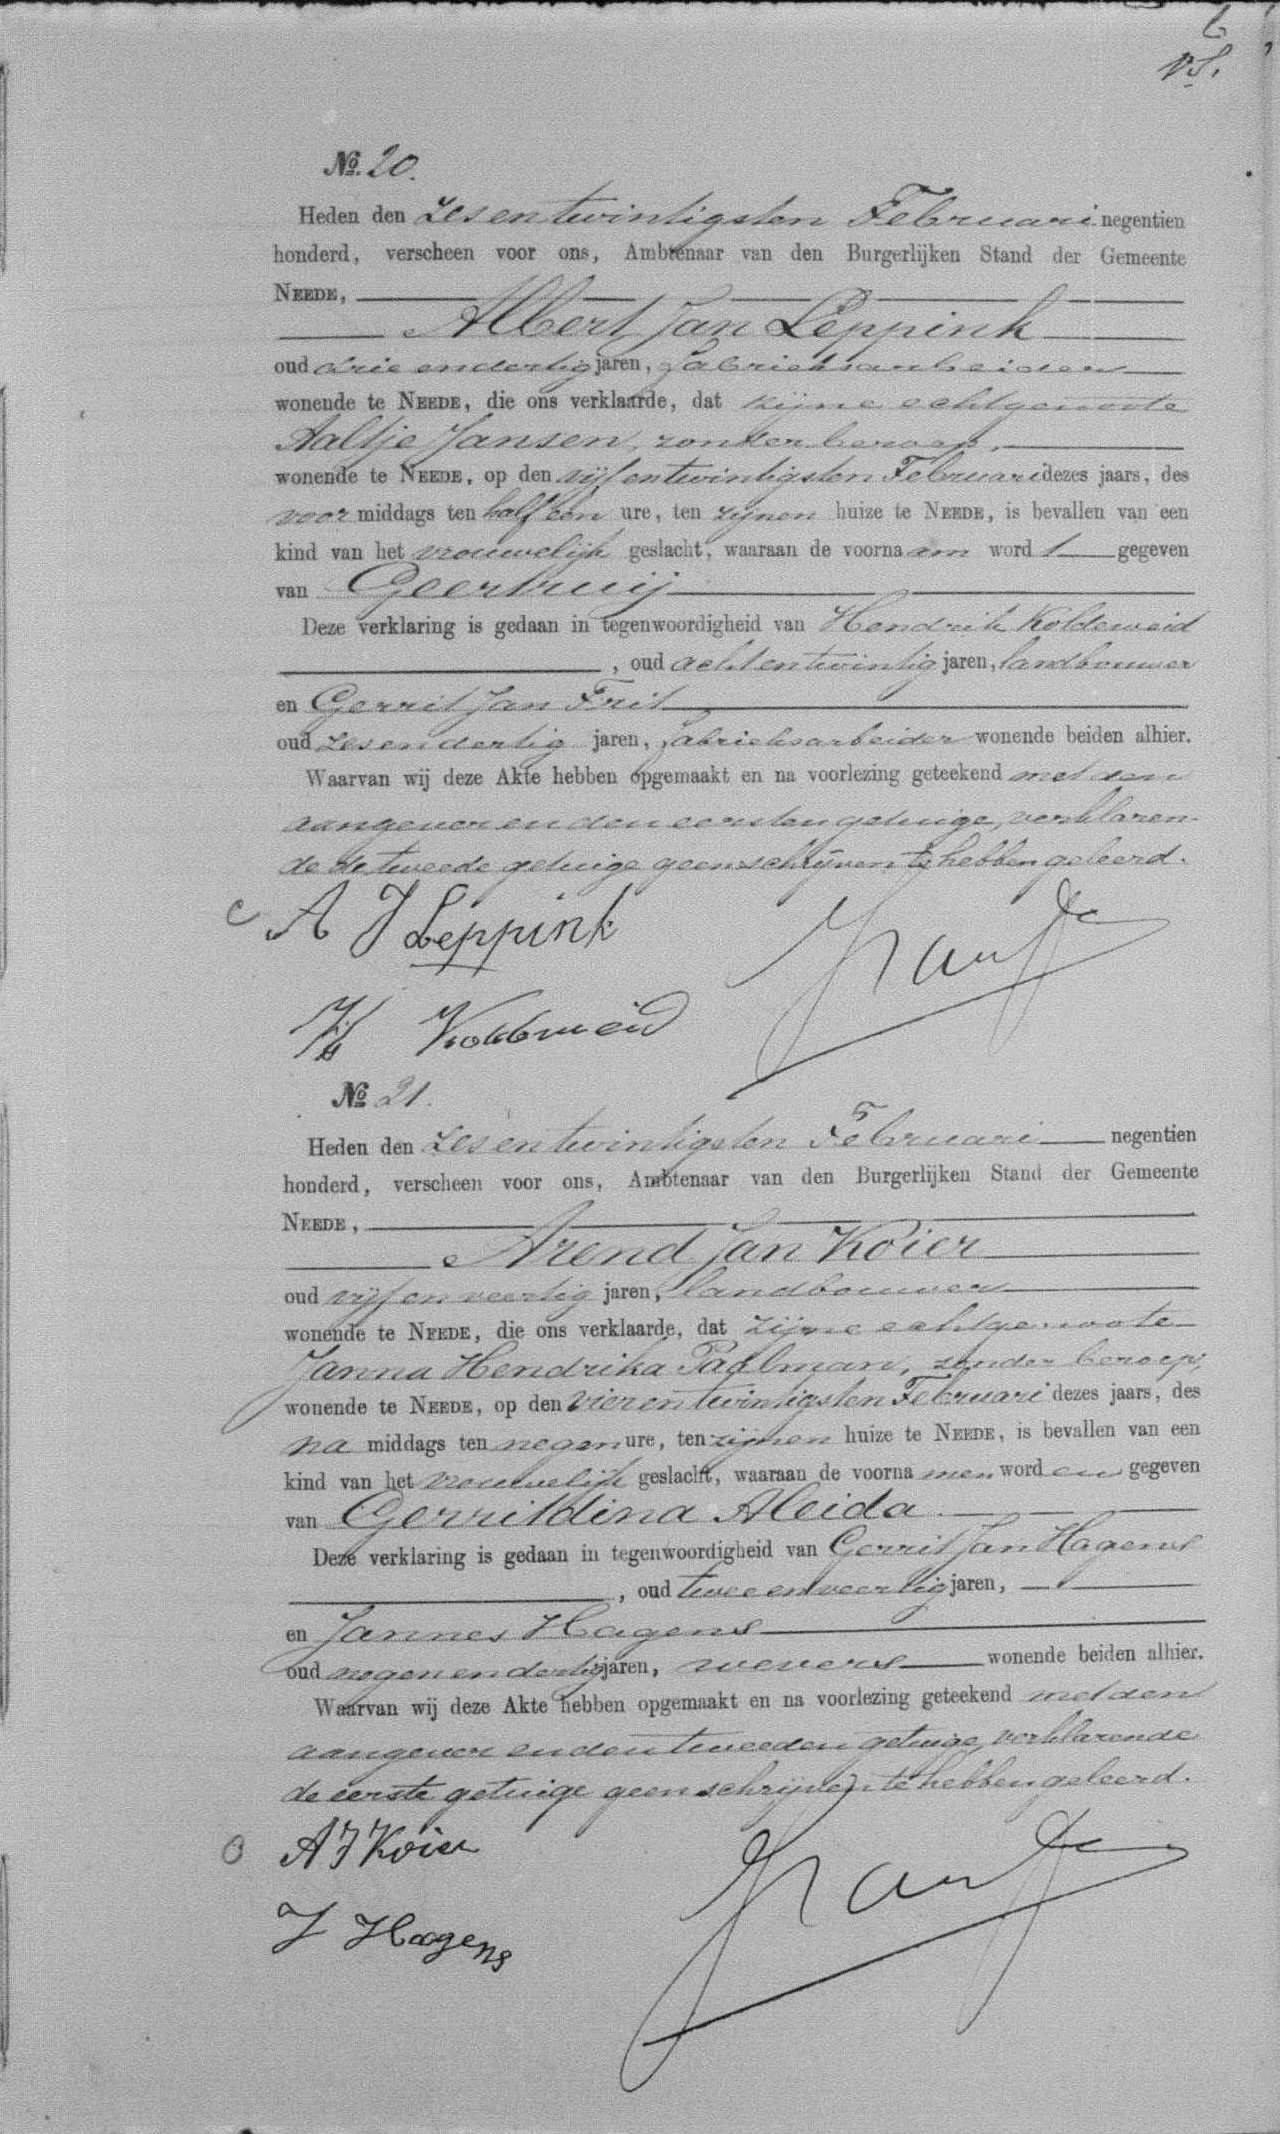 6
vS.
No. 20.
Heden den Zesentwintigsten Februari negentien
honderd, verscheen voor ons, Ambtenaar van den Burgerlijken Stand der Gemeente
NEEDE,
Albert Jan Leppink
oud drie endertig jaren, fabrieksarbeider
wonende te NEEDE, die ons verklaarde, dat zijne echtgenoote
Aaltje Jansen, zonder beroep,
wonende te NEEDE, op den vijfentwintigsten Februari dezes jaars, des
voor middags ten half één ure, ten zijnen huize te NEEDE, is bevallen van een
kind van het vrouwelijk geslacht, waaraan de voornaam wordt gegeven
van Geertruij
Deze verklaring is gedaan in tegenwoordigheid van Hendrik Koldeweid
, oud achtentwintig jaren, landbouwer
en Gerrit Jan Frit
oud zesendertig jaren, fabrieksarbeider wonende beiden alhier.
Waarvan wij deze Akte hebben opgemaakt en na voorlezing geteekend met den
aangever en den eersten getuige, verklaren-
de de tweede getuige geen schrijven te hebben geleerd.
A J Leppink
H Koldeweid
No 21.
Heden den Zesentwintigsten Februari negentien
honderd, verscheen voor ons, Ambtenaar van den Burgerlijken Stand der Gemeente
NEEDE,
Arend Jan Koier
oud vijf en veertig jaren, landbouwer
wonende te NEEDE, die ons verklaarde, dat zijne echtgenoote
Janna Hendrika Paalman, zonder beroep,
wonende te NEEDE, op den vierentwintigsten Februari dezes jaars, des
na middags ten negen ure, ten zijnen huize te NEEDE, is bevallen van een
kind van het vrouwelijk geslacht, waaraan de voornamen worden gegeven
van Gerritdina Aleida
Deze verklaring is gedaan in tegenwoordigheid van Gerrit Jan Hagens
, oud twee en veertig jaren,
en Jannes Hagens
oud negen en dertig jaren, wevers wonende beiden alhier.
Waarvan wij deze Akte hebben opgemaakt en na voorlezing geteekend met den
aangever en den tweeden getuige, verklarende
de eerste getuige geen schrijven te hebben geleerd.
A J Koier
J Hagens